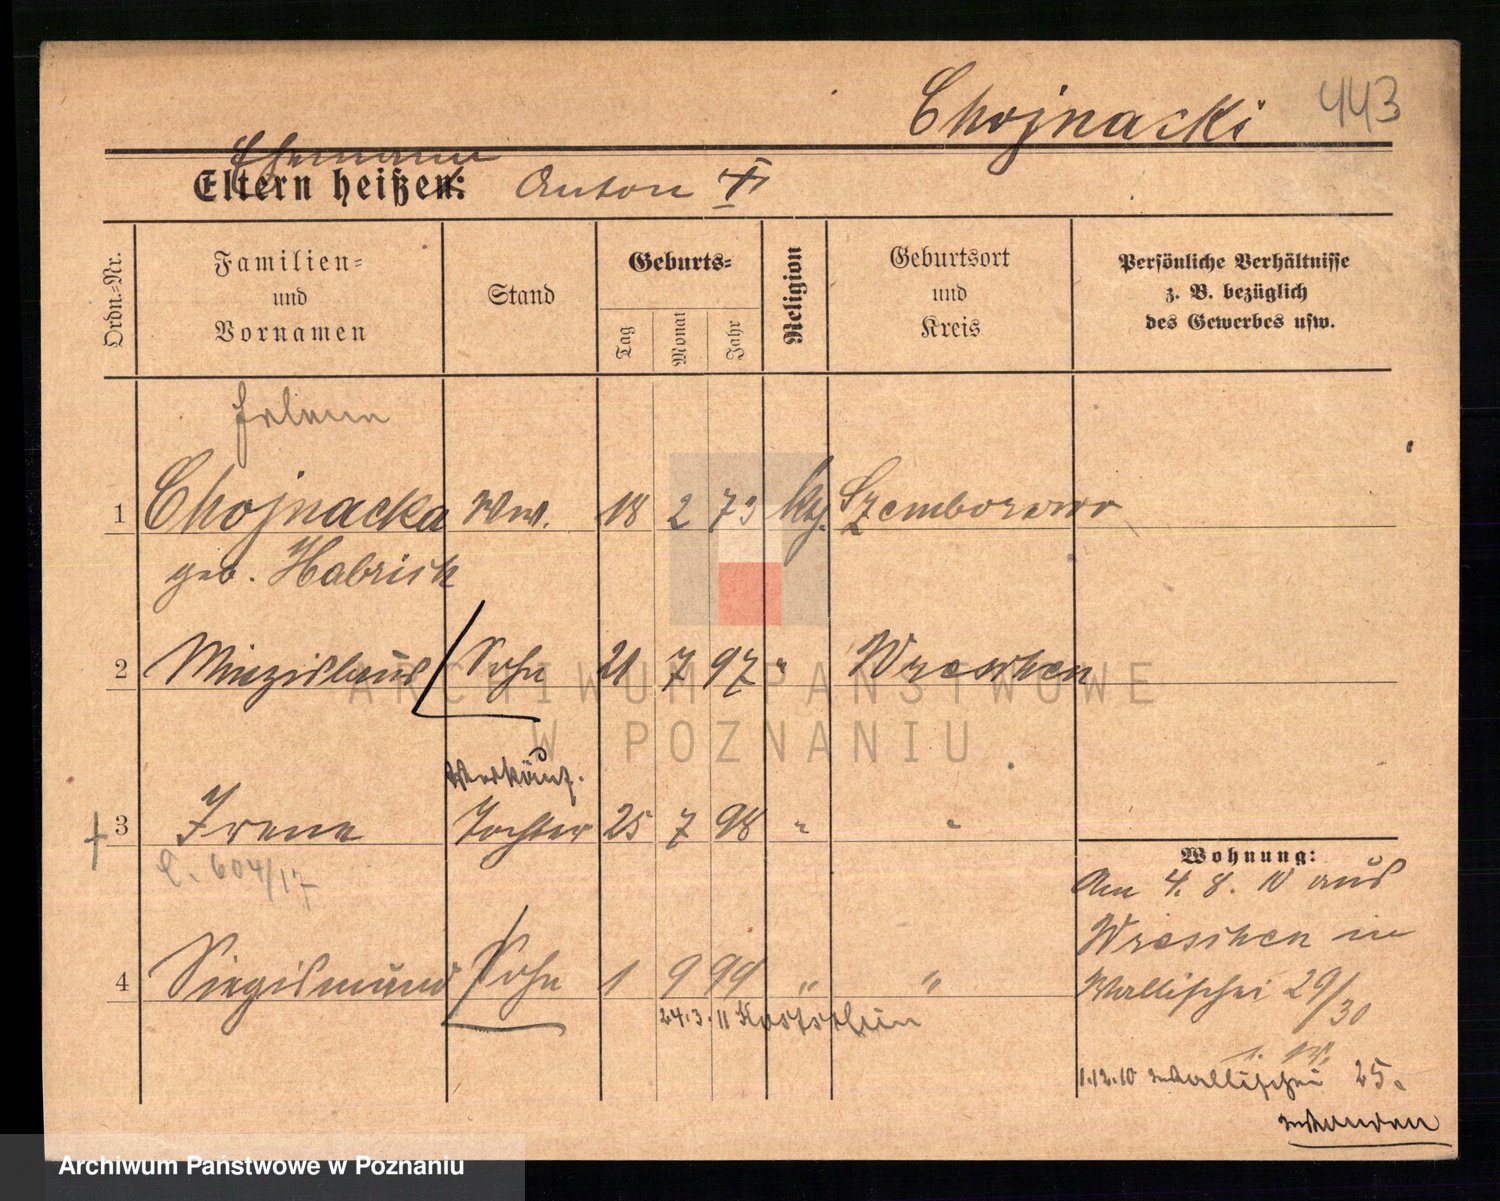 Chojnacki 443
Ehemann
Eltern heißen: Anton †
Ordn.-Nr.
Familien-
und
Vornamen
Stand
Geburts-
Tag
Monat
Jahr
Religion
Geburtsort
und
Kreis
Persönliche Verhältnisse
z. B. bezüglich
des Gewerbes usw.
Helene
1 Chojnacka Ww. 18 2 73 kth. Szemborowo
geb. Habrich
2 Miezislaus Sohn 21 7 97 " Wreschen
Verkäuf.
3 Irene Tochter 25 7 98 " "
604/17
Wohnung:
Am 4. 8. 10 aus
Wreschen in
Wallischei 29/30
4 Siegismund Sohn 1 9 99 " "
24.3.11 Kostschin
1.12.10 Wallischei 25.
ARCHIWUM PAŃSTWOWE
W POZNANIU
Archiwum Państwowe w Poznaniu